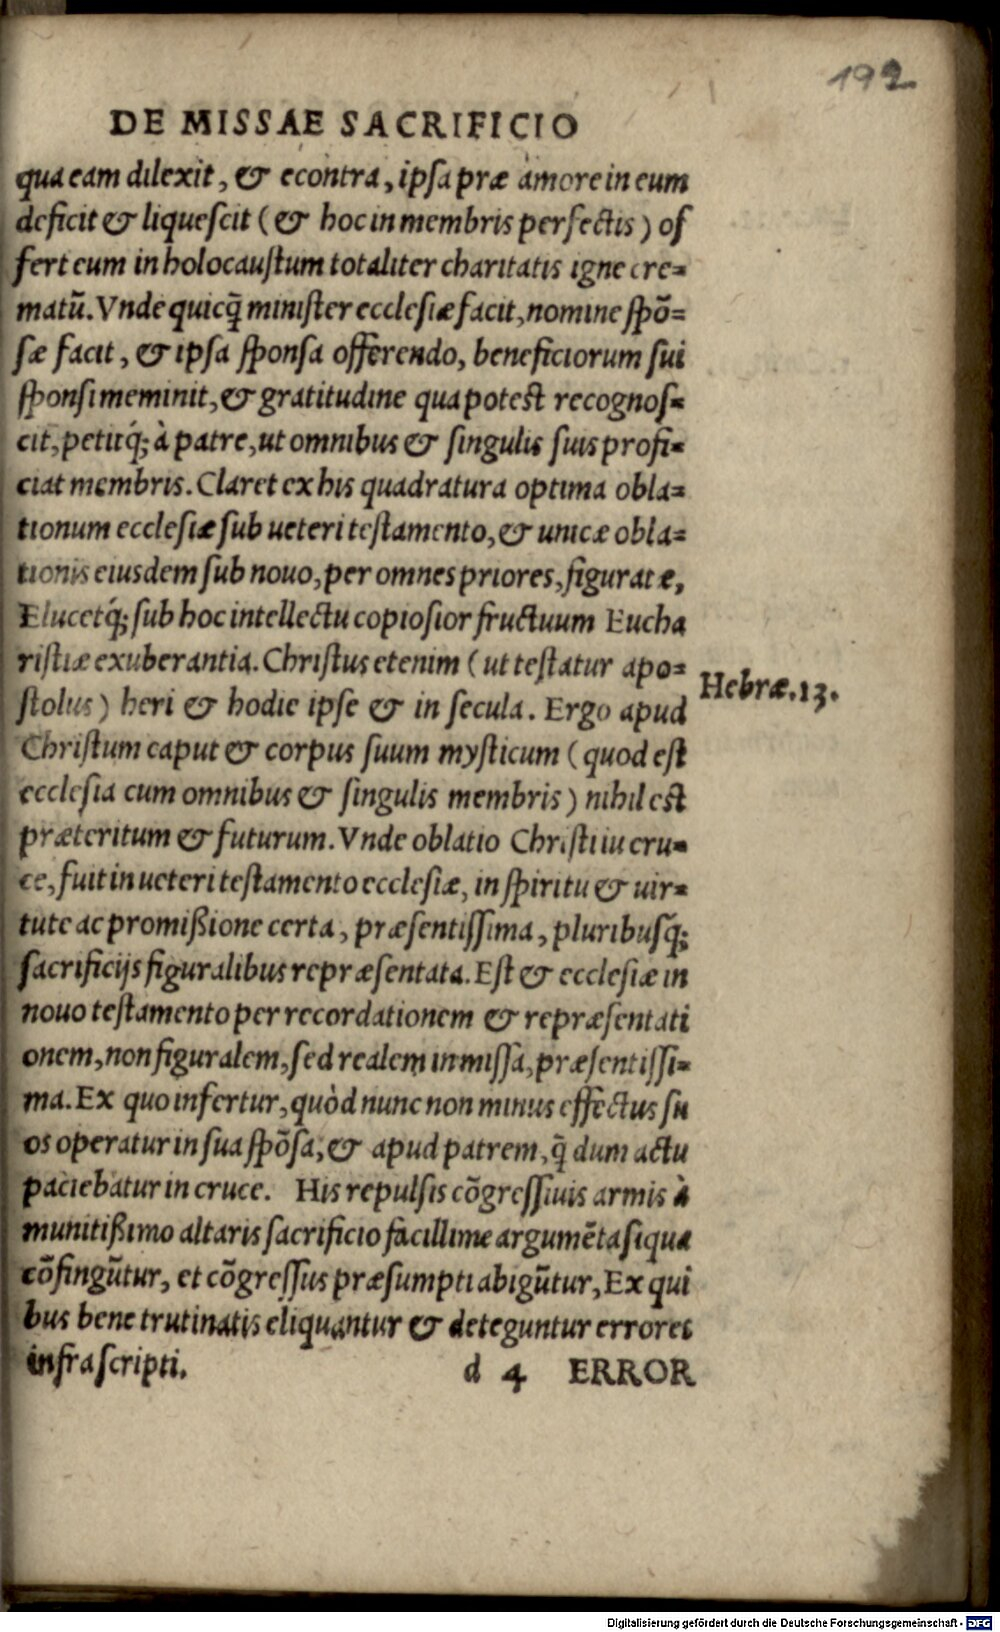 192
DE MISSAE SACRIFICIO
qua eam dilexit, & econtra, ipsa præ amore in eum
deficit & liquescit (& hoc in membris perfectis) of
fert eum in holocaustum totaliter charitatis igne cre=
matũ. Vnde quicq̃ minister ecclesiæ facit, nomine spõ=
sæ facit, & ipsa sponsa offerendo, beneficiorum sui
sponsi meminit, & gratitudine qua potest recognos=
cit, petitq́; à patre, ut omnibus & singulis suis profi=
ciat membris. Claret ex his quadratura optima obla=
tionum ecclesiæ sub ueteri testamento, & unicæ obla=
tionis eiusdem sub nouo, per omnes priores, figuratæ,
Elucetq́; sub hoc intellectu copiosior fructuum Eucha
ristiæ exuberantia. Christus etenim (ut testatur apo=
stolus) heri & hodie ipse & in secula. Ergo apud
Hebræ.13.
Christum caput & corpus suum mysticum (quod est
ecclesia cum omnibus & singulis membris) nihil est
præteritum & futurum. Vnde oblatio Christi iu cru=
ce, fuit in ueteri testamento ecclesiæ, in spiritu & uir=
tute ac promißione certa, præsentissima, pluribusq́;
sacrificijs figuralibus repræsentata. Est & ecclesiæ in
nouo testamento per recordationem & repræsentati
onem, non figuralem, sed realem in missa, præsentissi=
ma. Ex quo infertur, quòd nunc non minus effectus su
os operatur in sua spõsa, & apud patrem, q̃ dum actu
paciebatur in cruce. His repulsis cõgressiuis armis à
munitißimo altaris sacrificio facillime argumẽta siqua
cõfingũtur, et cõgressus præsumpti abigũtur, Ex qui
bus bene trutinatis eliquantur & deteguntur errores
infrascripti.
d 4 ERROR
Digitalisierung gefördert durch die Deutsche Forschungsgemeinschaft - DFG